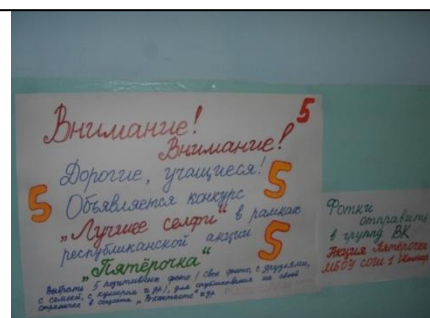 5
Внимание!
Внимание!
Дорогие, учащиеся!
5 5
Объявляется конкурс
„Лучшее селфи" в рамках
республиканской акции
5
„Пятёрочка"
Выбрать 5 позитивных фото (свое фото, с друзьями,
с семьей, с кумиром и др), для опубликования на своей
страничке в соцсети „Вконтакте" и др.
Фотки
отправить
в группу ВК
Акция Пятёрочка
МБОУ СОШ 1